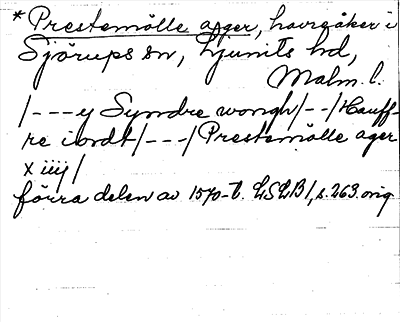 * Prestemölle agger, havreåker i
Sjörups sn, Ljunits hd,
Malm. l.
/---ej Syndre wongh/--/Hauff-
re iordt/---/Prestemölle ager
x iiij/
förra delen av 1570-t. LSLB1, s. 263. orig